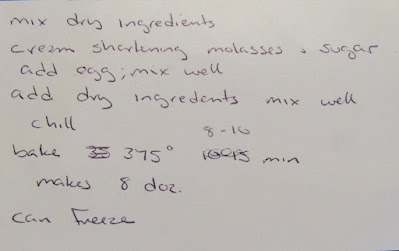 mix dry ingredients
cream shortening molasses + sugar
add egg; mix well
add dry ingredents mix well
chill
8-10
bake 375° min
makes 8 doz.
can Freeze